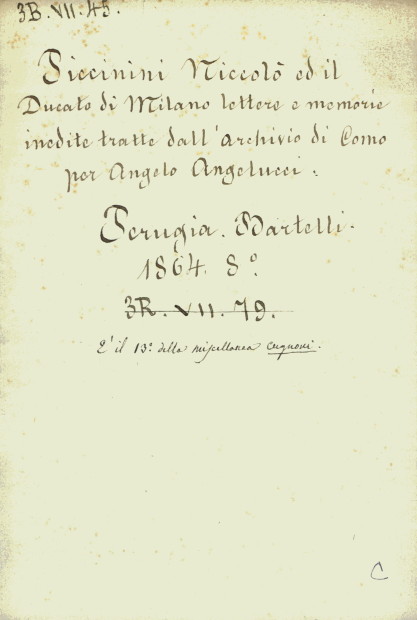 3B. VII. 45.
Piccinini Niccolò ed il
Ducato di Milano lettere e memorie
inedite tratte dall'archivio di Como
per Angelo Angelucci.
Perugia. Bartelli.
1864. 8º.
3R. VII. 79.
E' il 13º della miscellanea Cugnoni.
C